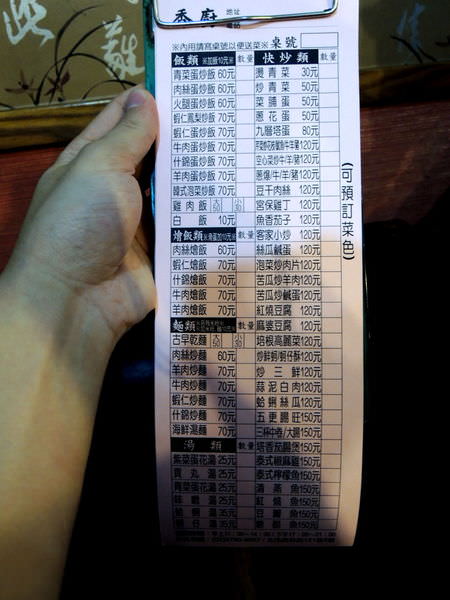 此
難
香廚 地址
※內用請寫桌號以便送菜※ 桌號
飯類 ※加飯10元※ 數量
青菜蛋炒飯 60元
肉絲蛋炒飯 60元
火腿蛋炒飯 60元
蝦仁鳳梨炒飯 70元
蝦仁蛋炒飯 70元
牛肉蛋炒飯 70元
什錦蛋炒飯 70元
羊肉蛋炒飯 70元
韓式泡菜炒飯 70元
雞肉飯 大50 小30
白飯 10元
燴飯類 數量
肉絲燴飯 60元
蝦仁燴飯 70元
什錦燴飯 70元
牛肉燴飯 70元
羊肉燴飯 70元
麵類 數量
古早乾麵 大50 小30
肉絲炒麵 60元
羊肉炒麵 70元
牛肉炒麵 70元
蝦仁炒麵 70元
什錦炒麵 70元
海鮮湯麵 70元
湯類 數量
紫菜蛋花湯 25元
貢丸湯 25元
青菜蛋花湯 25元
味噌湯 25元
蛤蜊湯 35元
蚵仔湯 35元
快炒類 數量
燙青菜 30元
炒青菜 50元
菜脯蛋 50元
蔥花蛋 50元
九層塔蛋 80元
120元
空心菜炒牛/羊/豬 120元
蔥爆牛/羊/豬 120元
豆干肉絲 120元
宮保雞丁 120元
魚香茄子 120元
客家小炒 120元
絲瓜鹹蛋 120元
泡菜炒肉片 120元
苦瓜炒羊肉 120元
苦瓜炒鹹蛋 120元
紅燒豆腐 120元
麻婆豆腐 120元
培根高麗菜 120元
炒鮮蚵/蚵仔酥 120元
炒三鮮 120元
蒜泥白肉 120元
蛤蜊絲瓜 120元
五更腸旺 150元
三杯中卷/大腸 150元
塔香茄腸煲 150元
泰式椒麻雞 150元
泰式檸檬魚 150元
清蒸魚 150元
紅燒魚 150元
豆瓣魚 150元
糖醋魚 150元
(可預訂菜色)